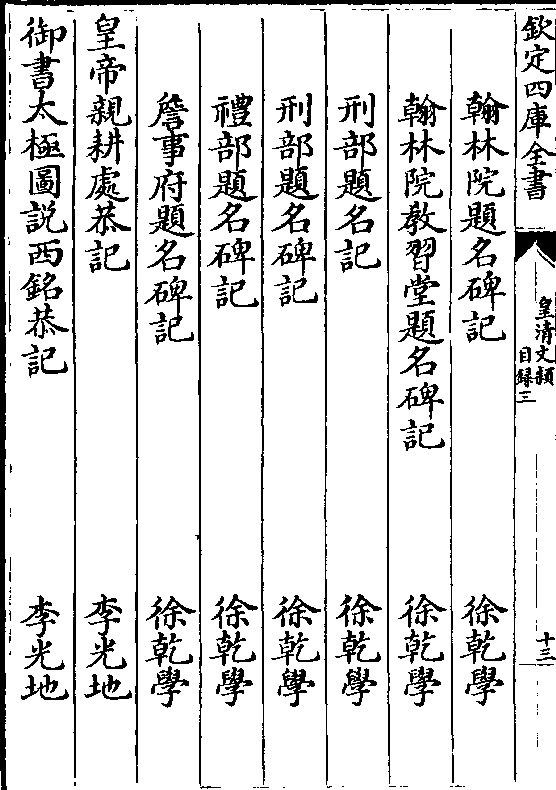 欽定四庫全書
皇清文穎
目録三
十三
翰林院題名碑記 徐乾學
翰林院教習堂題名碑記 徐乾學
刑部題名記 徐乾學
刑部題名碑記 徐乾學
禮部題名碑記 徐乾學
詹事府題名碑記 徐乾學
皇帝親耕處恭記 李光地
御書太極圖説西銘恭記 李光地